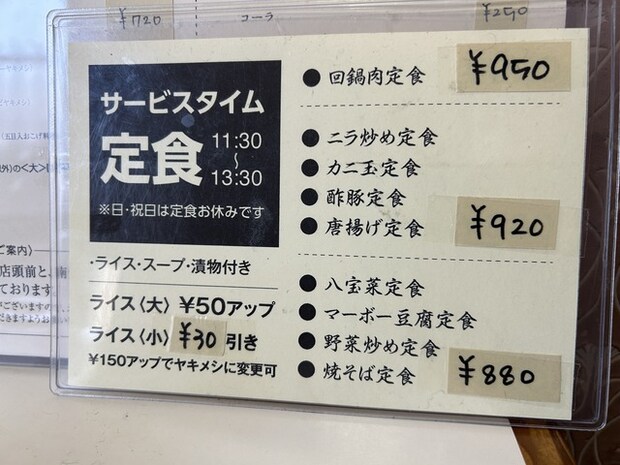 ¥720
コーラ
¥250
サービスタイム
定食
11:30
〜
13:30
※日・祝日は定食お休みです
・ライス・スープ・漬物付き
ライス〈大〉¥50アップ
ライス〈小〉¥30引き
¥150アップでヤキメシに変更可
●回鍋肉定食 ¥950
●ニラ炒め定食
●カニ玉定食
●酢豚定食
●唐揚げ定食 ¥920
●八宝菜定食
●マーボー豆腐定食
●野菜炒め定食
●焼そば定食 ¥880
ヤキメシ〉
外)の〈大〉
ご案内〉
店頭前と、南
ております